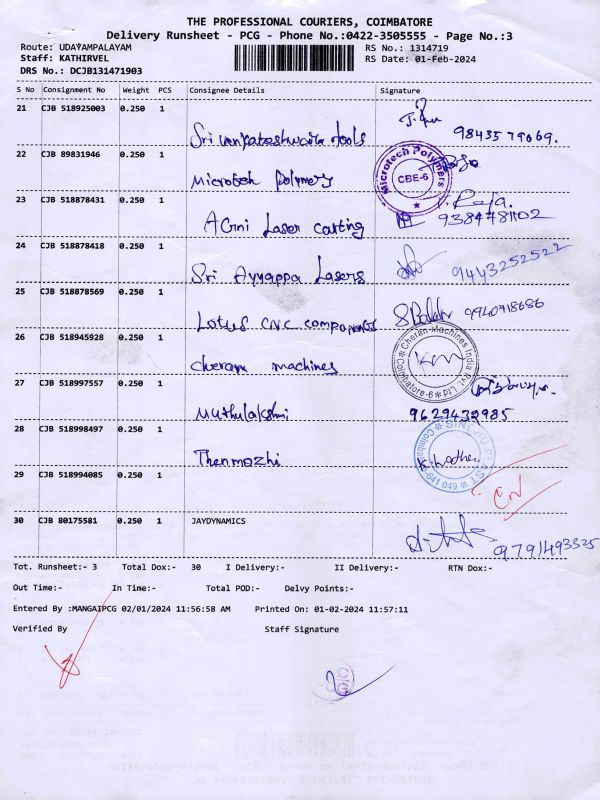 THE PROFESSIONAL COURIERS, COIMBATORE
Delivery Runsheet - PCG - Phone No.:0422-3505555 - Page No.:3
Route: UDAYAMPALAYAM RS No.: 1314719
Staff: KATHIRVEL RS Date: 01-Feb-2024
DRS No.: DCJB131471903
S No Consignment No Weight PCS Consignee Details Signature
21 CJB 518925003 0.250 1
Sri venkateshwara tools 9843579069.
22 CJB 89831946 0.250 1
Microtech Polymers
Microtech Polymers CBE-6
23 CJB 518878431 0.250 1
AGni Laser cutting 9384781102
24 CJB 518878418 0.250 1
Sri Ayyappa Lasers 9443252522
25 CJB 518878569 0.250 1
Lotus CNC components 9940918686
26 CJB 518945928 0.250 1
cheran machines
Cheran Machines India Pvt. Ltd Coimbatore-6
27 CJB 518997557 0.250 1
Muthulakshmi 9629432985
28 CJB 518998497 0.250 1
Thenmozhi
Coimbatore-641 049
29 CJB 518994085 0.250 1
30 CJB 80175581 0.250 1 JAYDYNAMICS
9791493325
Tot. Runsheet:- 3 Total Dox:- 30 I Delivery:- II Delivery:- RTN Dox:-
Out Time:- In Time:- Total POD:- Delvy Points:-
Entered By :MANGAIPCG 02/01/2024 11:56:58 AM Printed On: 01-02-2024 11:57:11
Verified By Staff Signature